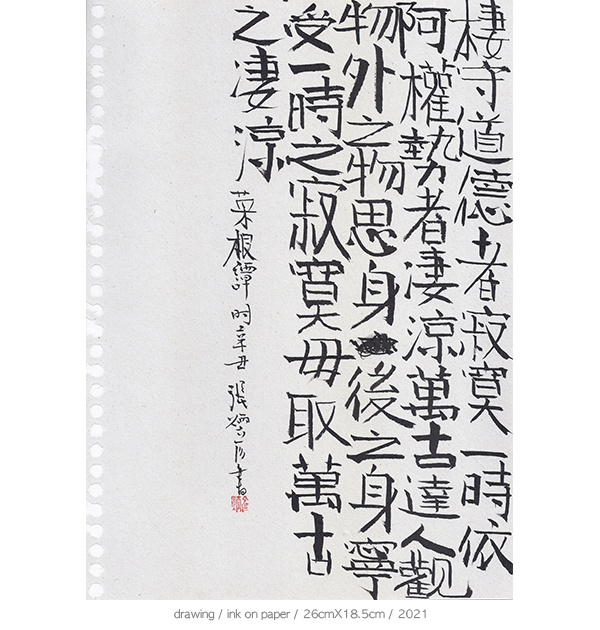 棲守道德者寂寞一時依
阿權勢者淒涼萬古達人觀
物外之物思身後之身寧
受一時之寂寞毋取萬古
之淒涼
菜根譚 时辛丑 張 書
drawing / ink on paper / 26cmX18.5cm / 2021